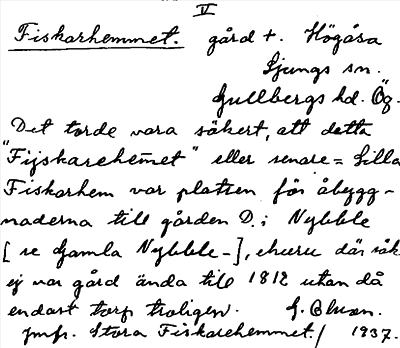 V
Fiskarhemmet. gård †. Högåsa
Ljungs sn.
Gullbergs hd. Ög.
Det torde vara säkert, att detta
"Fijskarehem̅et" eller senare = Lilla
Fiskarhem var platsen för åbygg-
naderna till gården D. i Nybble
[se Gamla Nybble-], ehuru där såk
ej var gård ända till 1812 utan då
endast torp troligen.
Jmfr. Stora Fiskarehemmet./ 1937.